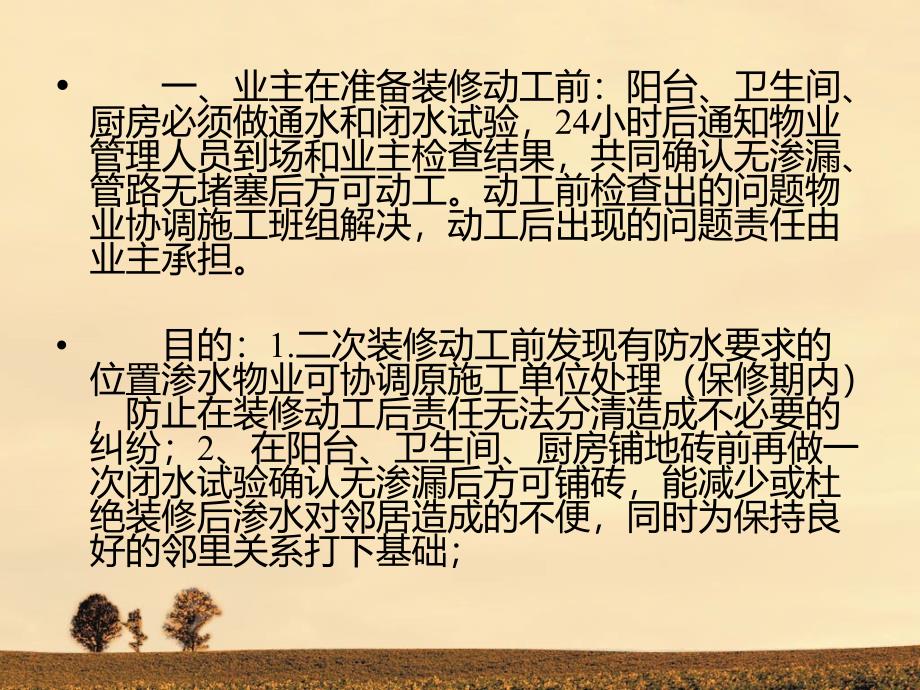 • 一、业主在准备装修动工前：阳台、卫生间、
厨房必须做通水和闭水试验，24小时后通知物业
管理人员到场和业主检查结果，共同确认无渗漏、
管路无堵塞后方可动工。动工前检查出的问题物
业协调施工班组解决，动工后出现的问题责任由
业主承担。
• 目的：1.二次装修动工前发现有防水要求的
位置渗水物业可协调原施工单位处理（保修期内）
，防止在装修动工后责任无法分清造成不必要的
纠纷；2、在阳台、卫生间、厨房铺地砖前再做一
次闭水试验确认无渗漏后方可铺砖，能减少或杜
绝装修后渗水对邻居造成的不便，同时为保持良
好的邻里关系打下基础；